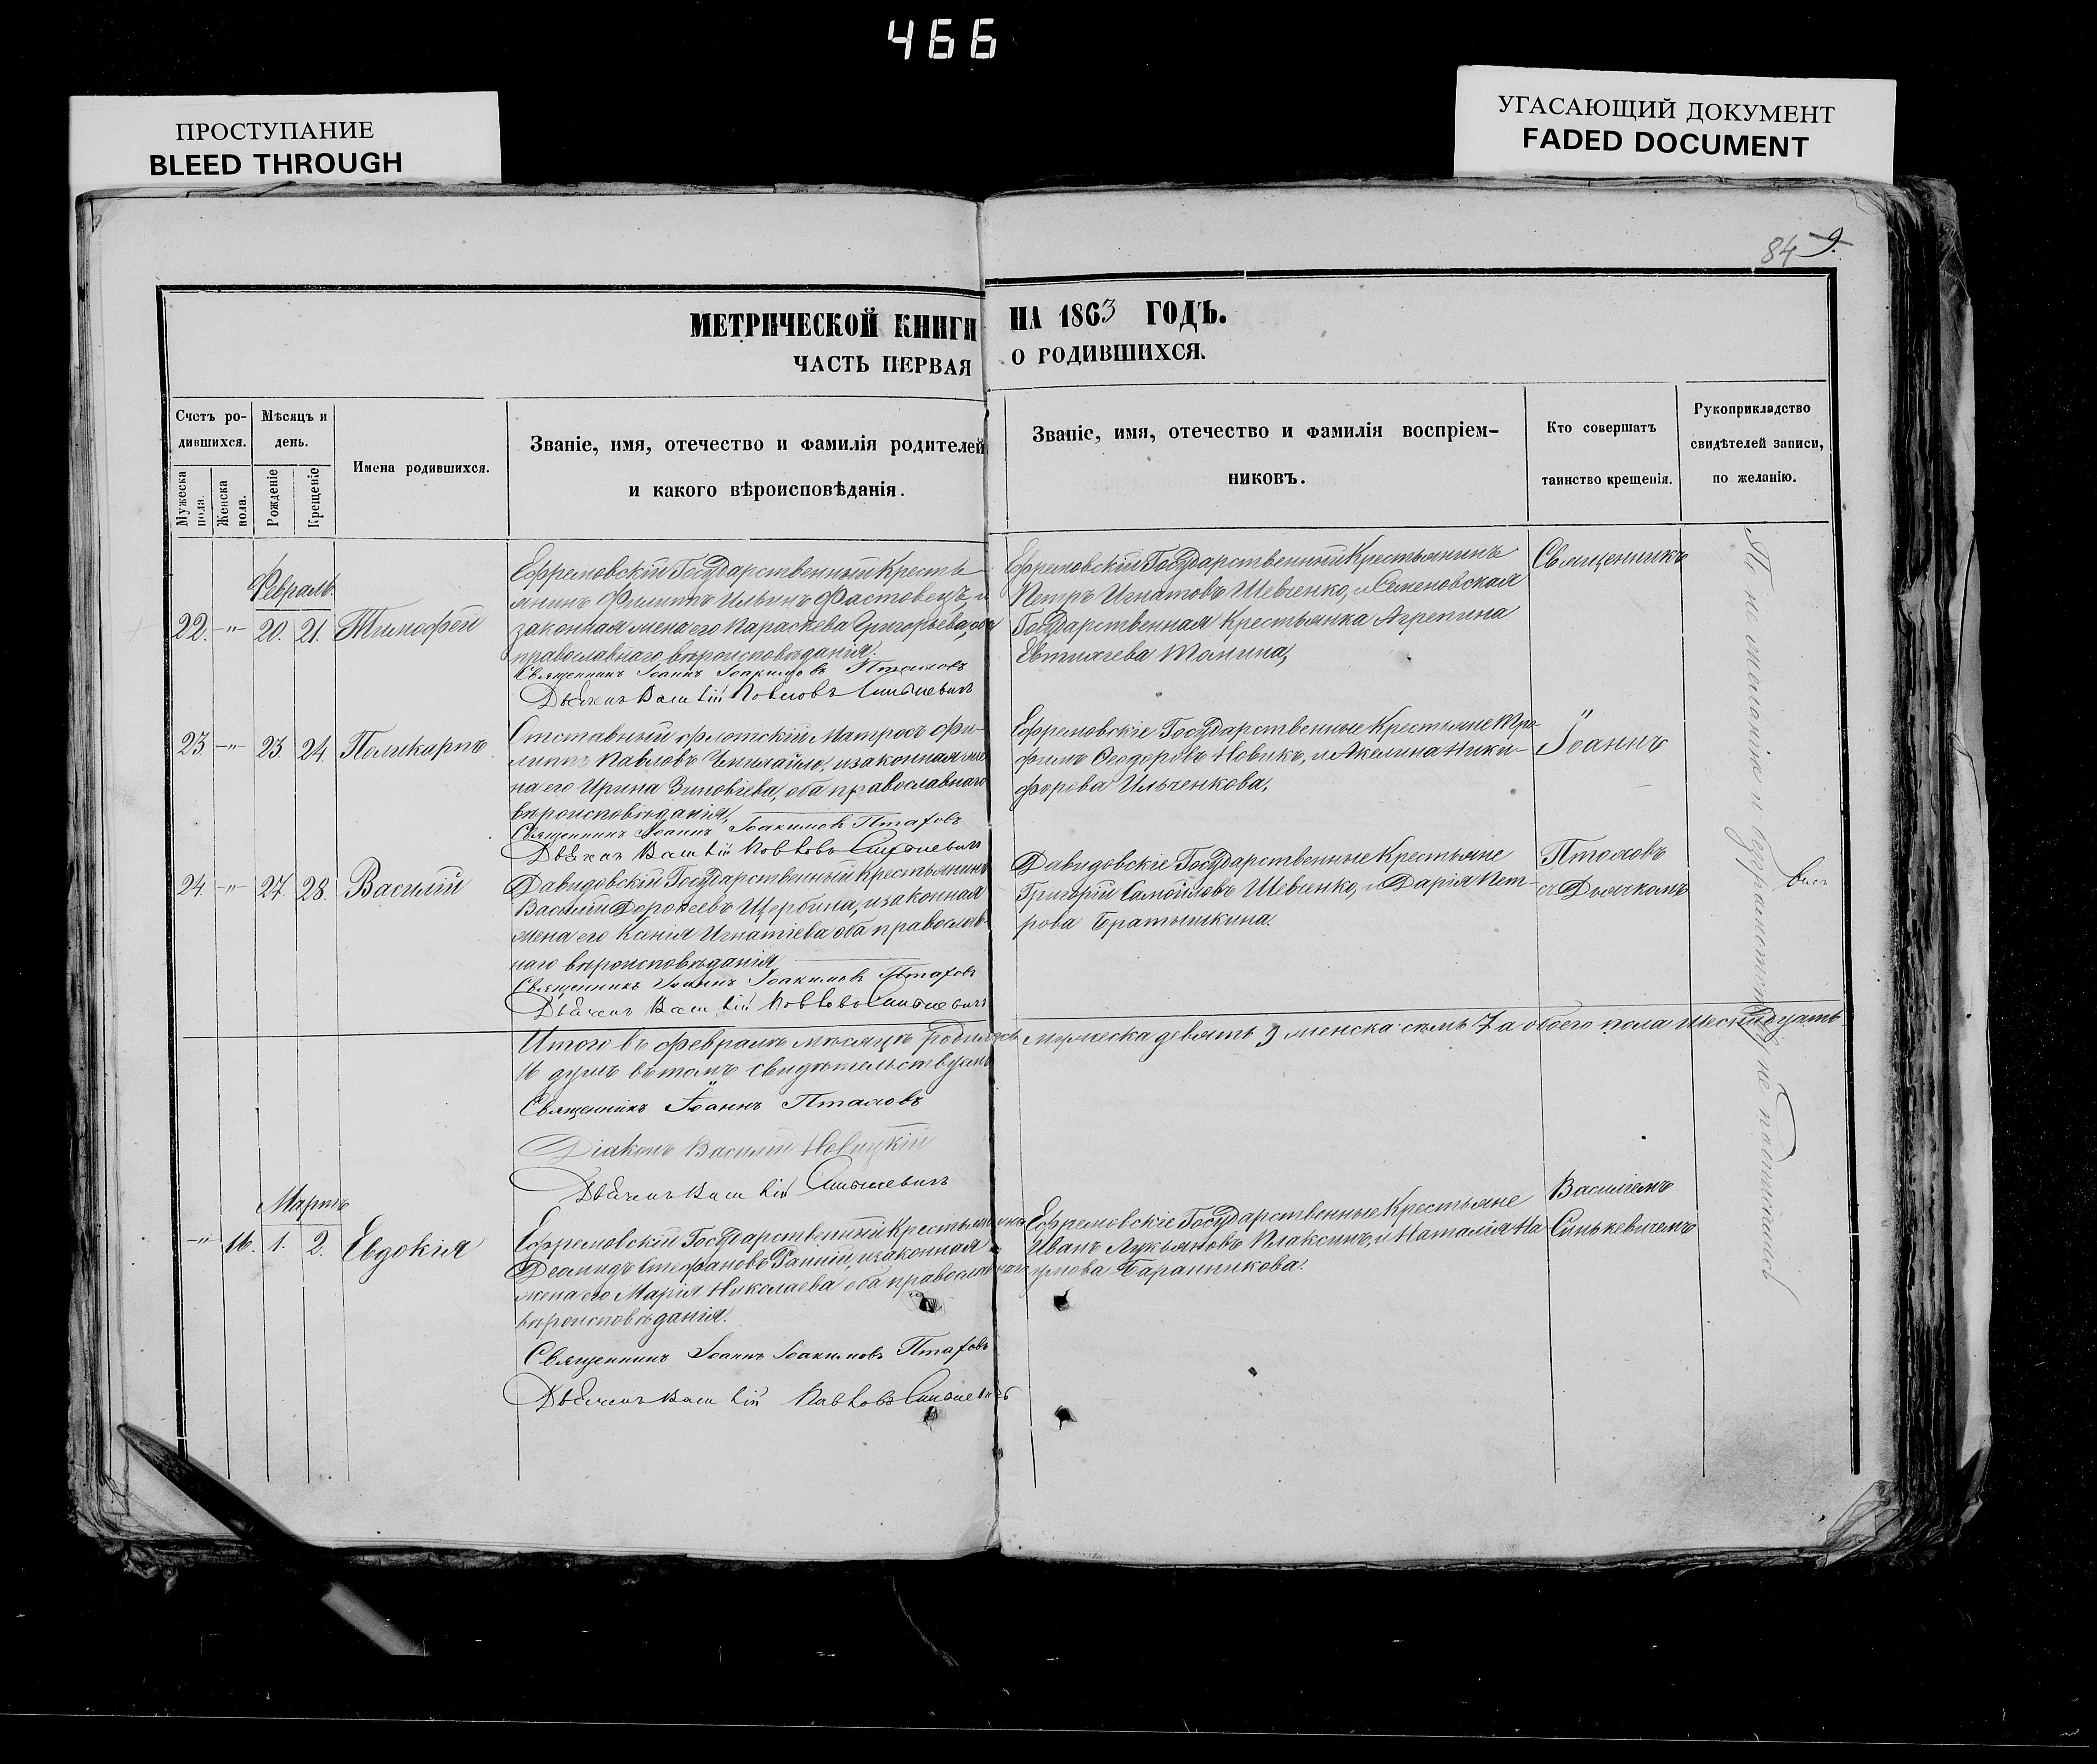 466
ПРОСТУПАНИЕ
BLEED THROUGH
УГАСАЮЩИЙ ДОКУМЕНТ
FADED DOCUMENT
84 9.
МЕТРИЧЕСКОЙ КНИГИ НА 1863 ГОДЪ.
ЧАСТЬ ПЕРВАЯ О РОДИВШИХСЯ.
Счетъ ро-
дившихся.
Мужеска
пола.
Женска
пола.
Мѣсяцъ и
день.
Рожденіе
Крещеніе
Имена родившихся.
Званіе, имя, отечество и фамилія родителей
и какого вѣроисповѣданія.
Званіе, имя, отечество и фамилія воспріем-
никовъ.
Кто совершатъ
таинство крещенія.
Рукоприкладство
свидѣтелей записи,
по желанію.
Февраль.
22. -"- 20. 21. Тимофей
Ефремовскій Государственный Кресть-
янинъ Филиппъ Ильинъ Фастовецъ, и
законная жена его Параскева Григорьева, оба
православнаго вѣроисповѣданія.
Священникъ Іоаннъ Іоакимовъ Птаховъ
Дьячекъ Василій Павловъ Синькевичъ
Ефремовскій Государственный Крестьянинъ
Петръ Игнатовъ Шевченко, и Семеновская
Государственная Крестьянка Агрепина
23. -"- 23. 24. Поликарпъ
Отставный флотскій Матросъ Фи-
липпъ Павловъ Чепижко, и законная же-
на его Ирина Зиновіева, оба православнаго
вѣроисповѣданія,
Священникъ Іоаннъ Іоакимовъ Птаховъ
Дьячекъ Василій Павловъ Синькевичъ
Ефремовскіе Государственные Крестьяне Тро-
фимъ Ѳеодоровъ Новикъ, и Акелина Ники-
форова Ильченкова,
24 -"- 27. 28. Василій
Давидовскій Государственный Крестьянинъ
Василій Дороѳеевъ Щербина, и законная
жена его Ксенія Игнатіева оба православ-
наго вѣроисповѣданія,
Священникъ Іоаннъ Іоакимовъ Птаховъ
Дьячекъ Василій Павловъ Синькевичъ
Давидовскіе Государственные Крестьяне
Григорій Самойловъ Шевченко, и Дарія Пет-
рова Братышкина.
Итого въ февралѣ мѣсяцѣ родилось мужеска девять 9 женска семь 7 а обоего пола шеснадцать
16 душъ въ томъ свидѣтельствуемъ
Священникъ Іоаннъ Птаховъ
Діаконъ Василій Новицкій
Дьячекъ Василій Синькевичъ
Мартъ
-"- 16. 1. 2. Евдокія
Ефремовскій Государственный Крестьянинъ
Стефановъ и законная
жена его Марія Николаева оба православнаго
вѣроисповѣданія.
Священникъ Іоаннъ Іоакимовъ Птаховъ
Дьячекъ Василій Павловъ Синькевичъ
Ефремовскіе Государственные Крестьяне
Иванъ Лукьяновъ Плаксинъ, и Наталія На-
умова Баранникова.
Священникъ
Іоаннъ
Птаховъ
съ Дьячкомъ
Василіемъ
Синькевичемъ
По не желанію и безграмотству не подписались